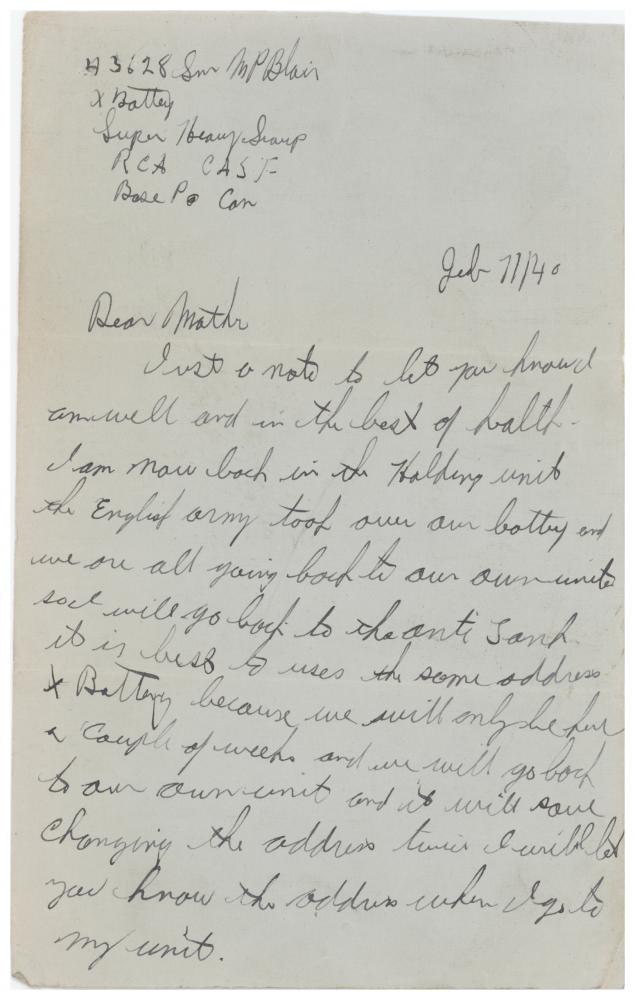 H3628 Gnr MP Blair
X Battey
Super Heavy Group
RCA CASF
Base Po Can
Feb 11/40
Dear Mother
Just a note to let you know I
am well and in the best of health.
I am now back in the Holding unit
the English army took over our battey and
we are all going back to our own units
so I will go back to the anti Tank.
it is best to uses the same address
X Battery because we will only be here
a couple of weeks and we will go back
to our own unit and it will save
changing the address twice I will let
you know the address when I go to
my unit.